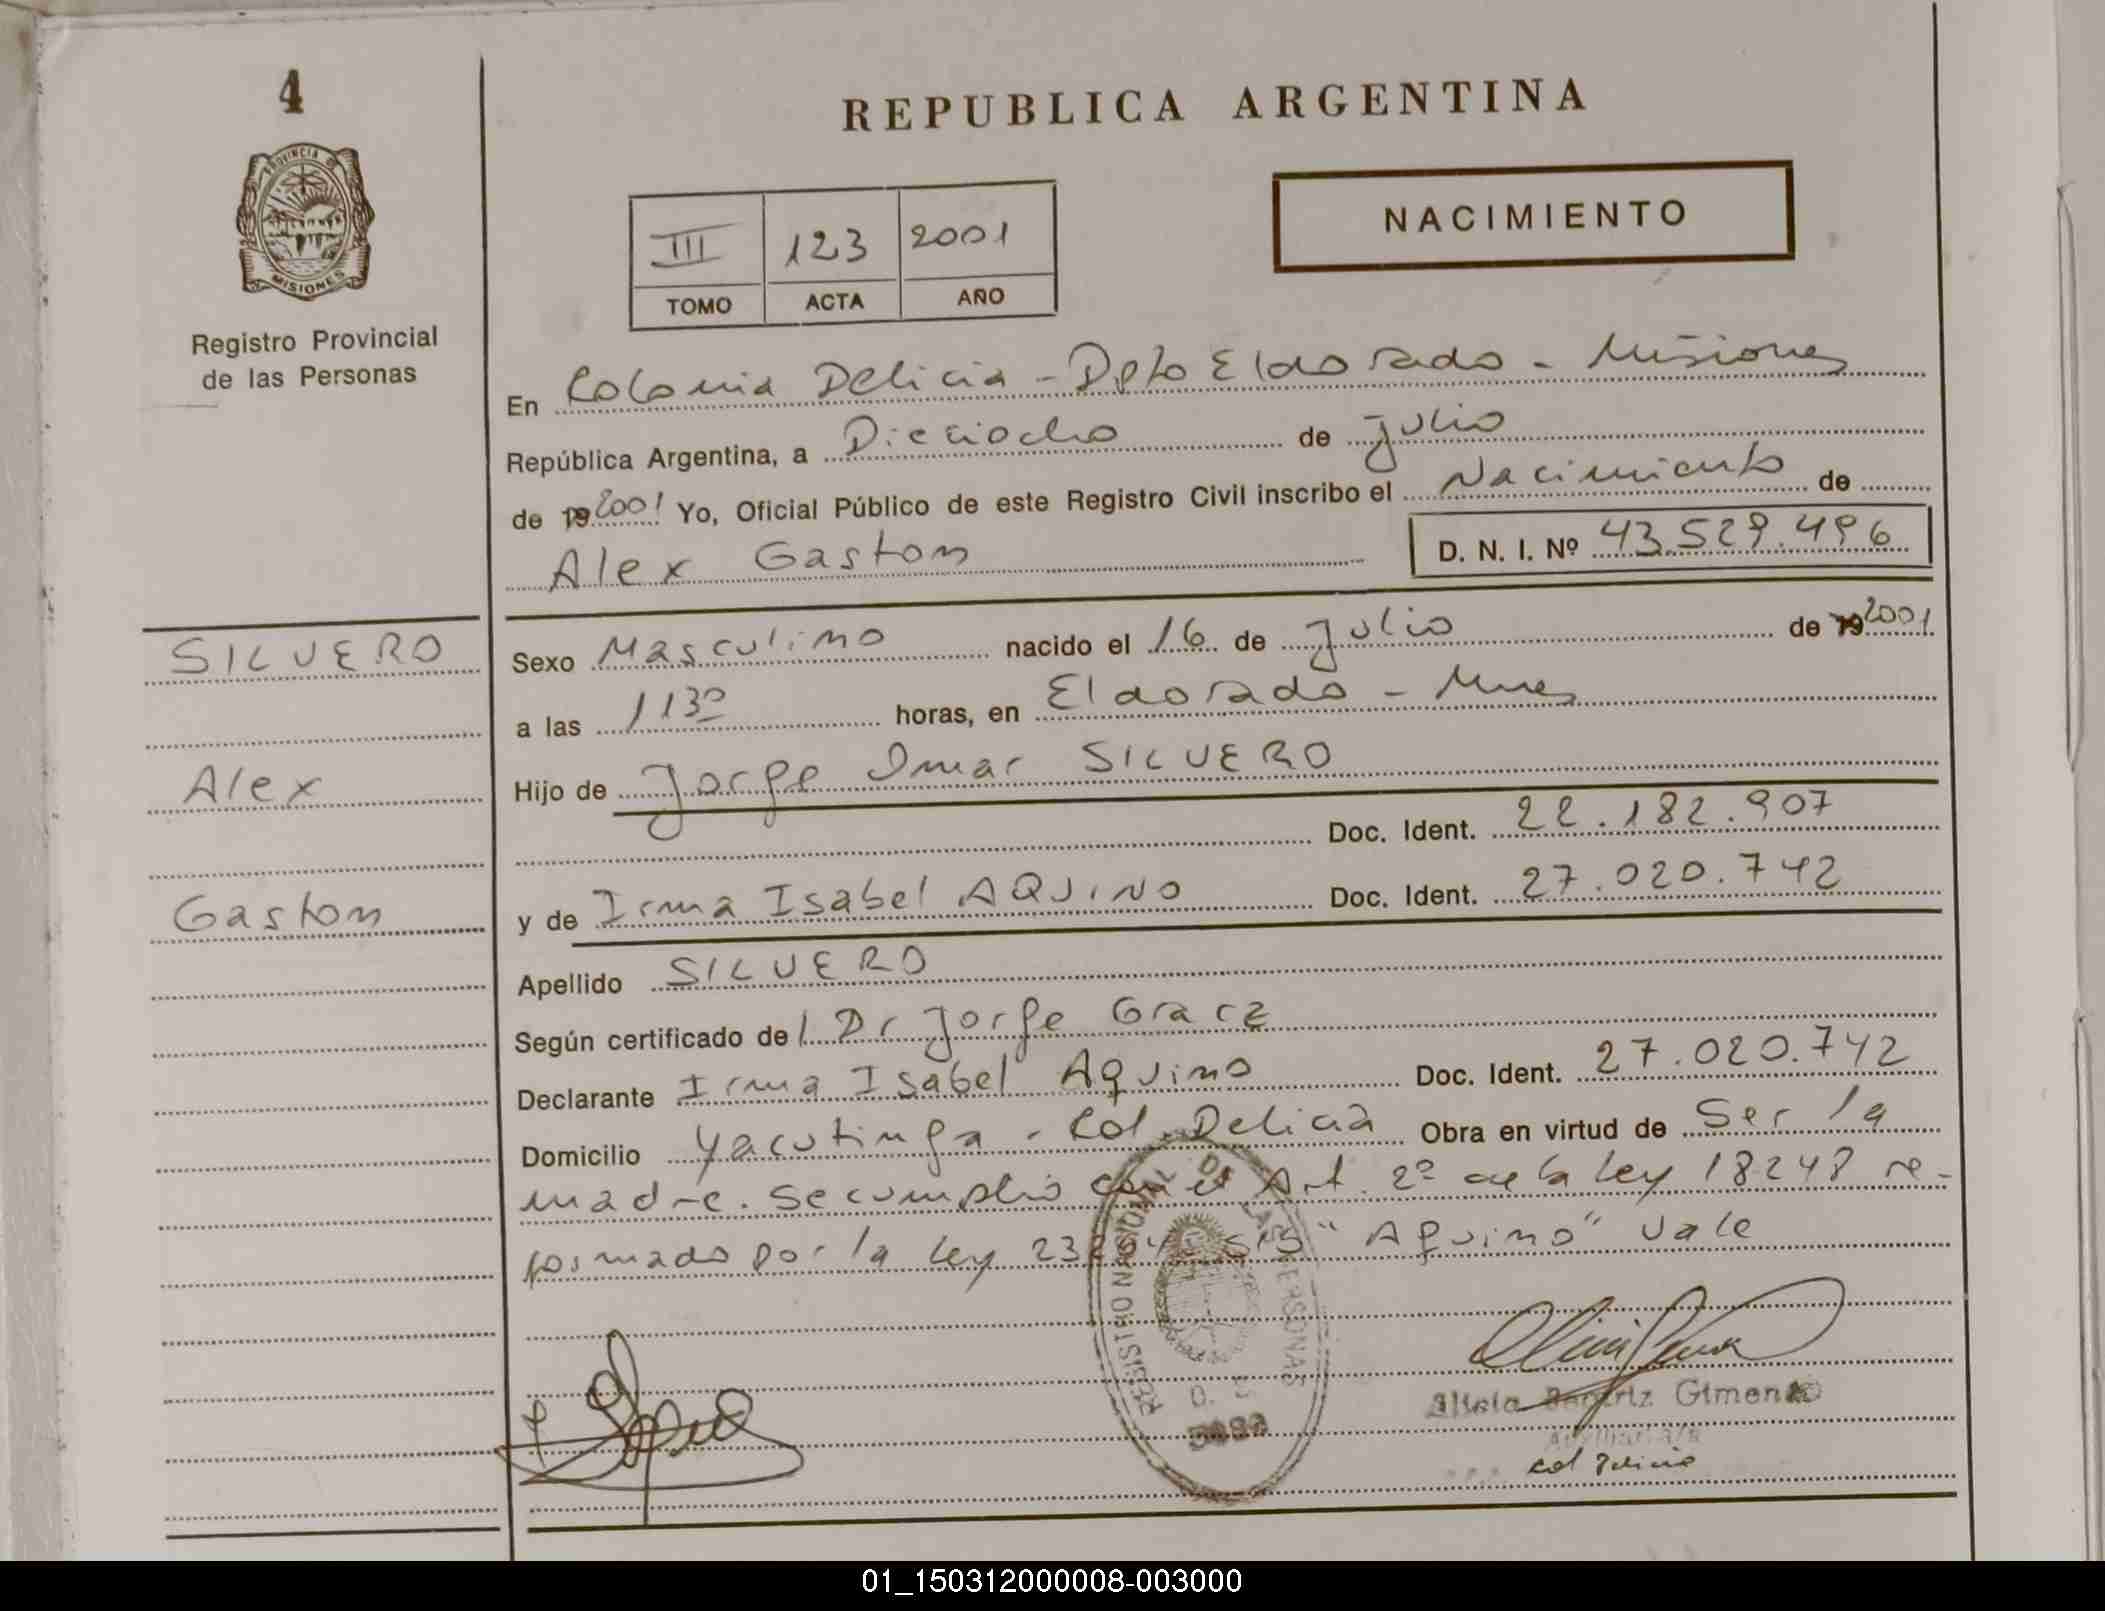 4
REPUBLICA ARGENTINA
PROVINCIA DE
MISIONES
Registro Provincial
de las Personas
III 123 2001
TOMO ACTA AÑO
NACIMIENTO
En Colonia Delicia - Dpto Eldorado - Misiones
República Argentina, a Dieciocho de Julio
de 19 2001 Yo, Oficial Público de este Registro Civil inscribo el Nacimiento de
Alex Gaston D. N. I. Nº 43.529.496
SILVERO
Alex
Gaston
Sexo Masculino nacido el 16 de Julio de 19 2001
a las 1130 horas, en Eldorado - Mnes
Hijo de Jorge Omar SILVERO
Doc. Ident. 22.182.907
y de Irma Isabel AQUINO Doc. Ident. 27.020.742
Apellido SILVERO
Según certificado del Dr Jorge
Declarante Irma Isabel Aquino Doc. Ident. 27.020.742
Domicilio Yacutinga - Col. Delicia Obra en virtud de Ser la
madre. Se cumplio con el Art. 2º de la Ley 18248 re-
formado por la Ley "Aquino" Vale
REGISTRO NACIONAL DE LAS PERSONAS
Gimenez
Auxiliar
Col Delicia
01_150312000008-003000